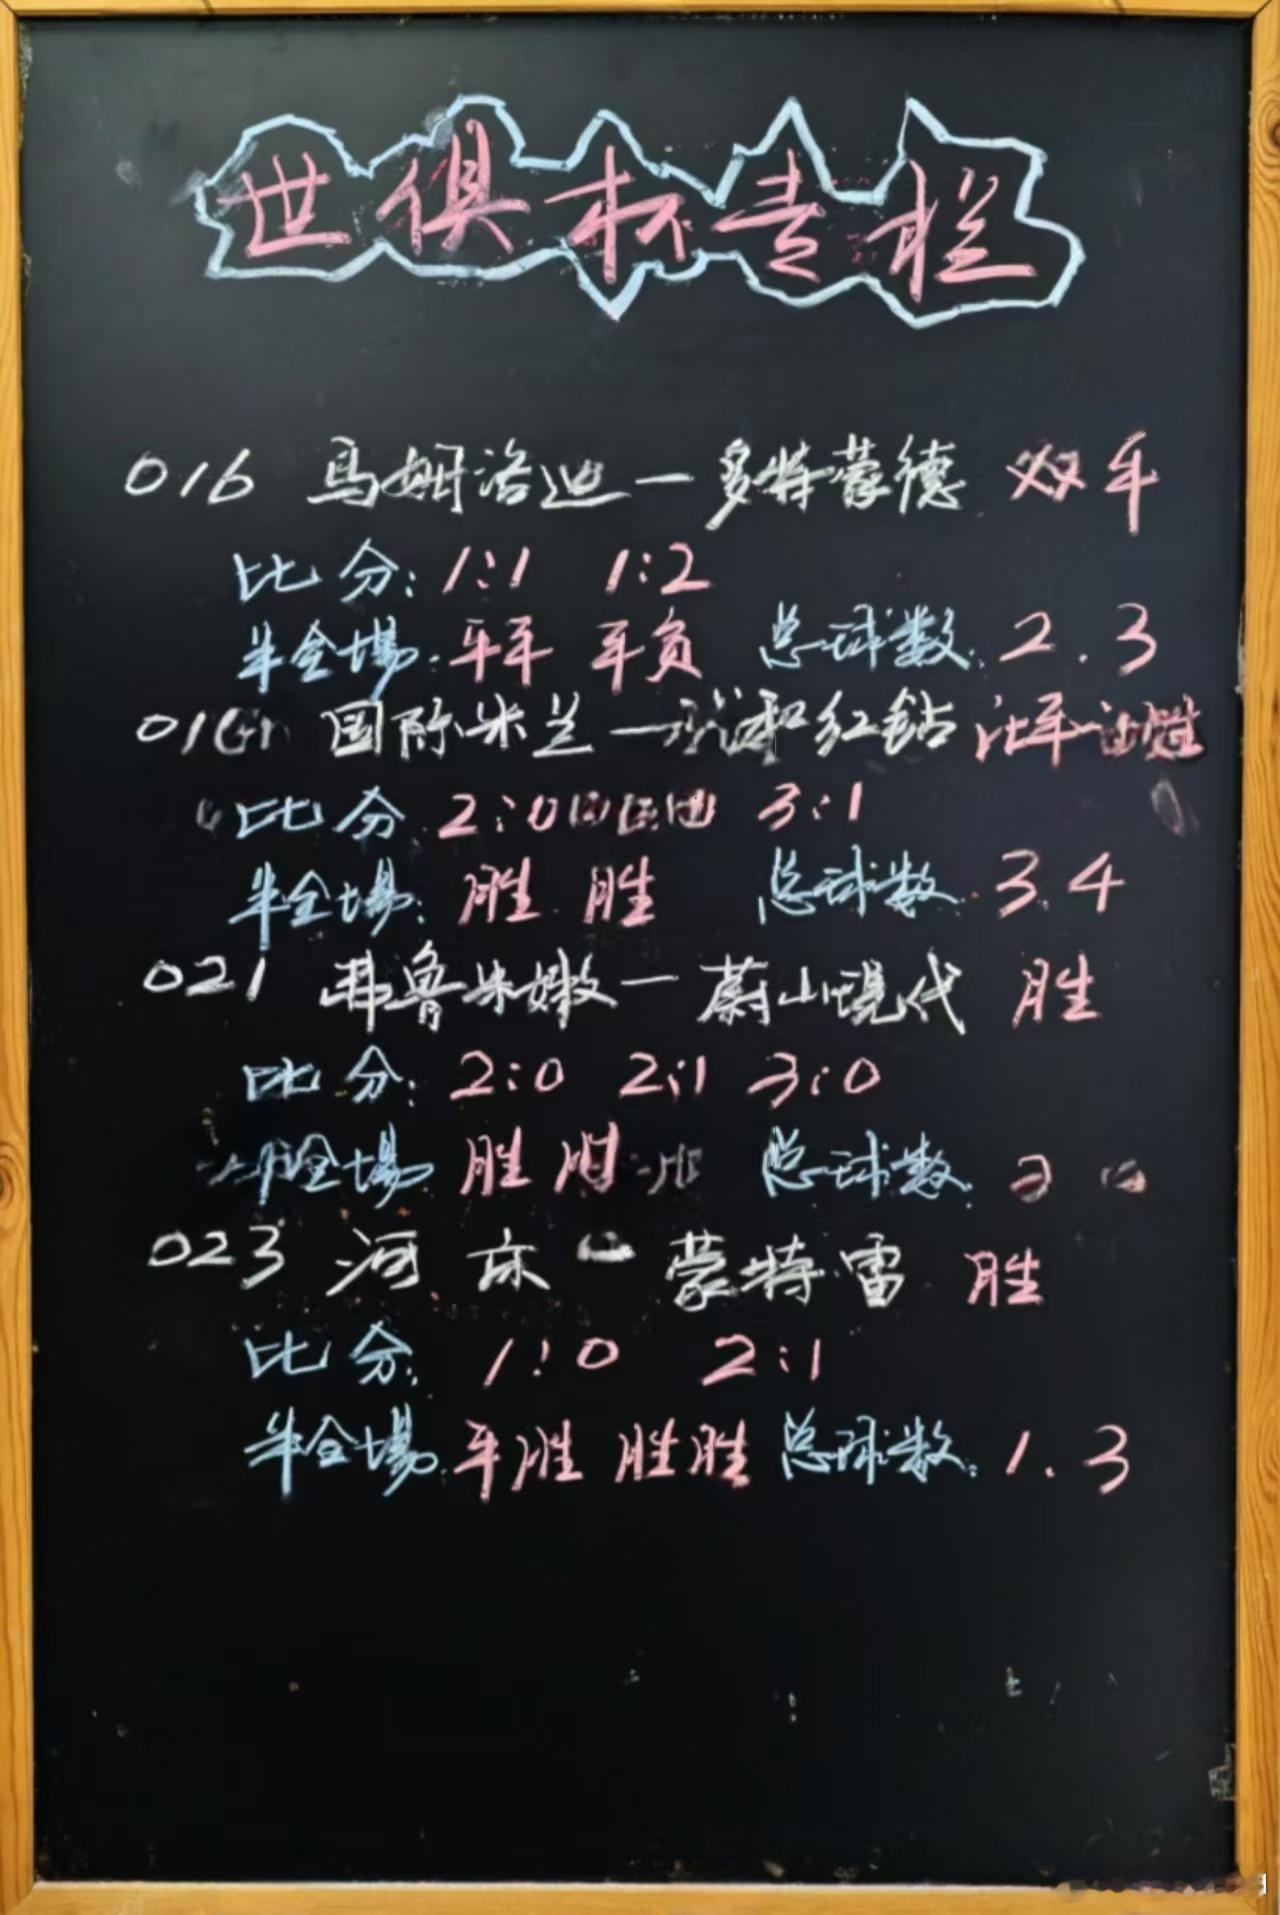 世俱杯专栏
016 马姆洛迪—多特蒙德 双平
比分: 1:1 1:2
半全場: 平平 平负 总球数: 2.3
01 国际米兰— 和红钻 让平
比分 2:0 3:1
半全場: 胜 胜 总球数: 3.4
021 弗鲁米嫩—蔚山現代 胜
比分: 2:0 2:1 3:0
半全場 胜 总球数:
023 河床 — 蒙特雷 胜
比分: 1:0 2:1
半全場: 平胜 胜胜 总球数: 1.3